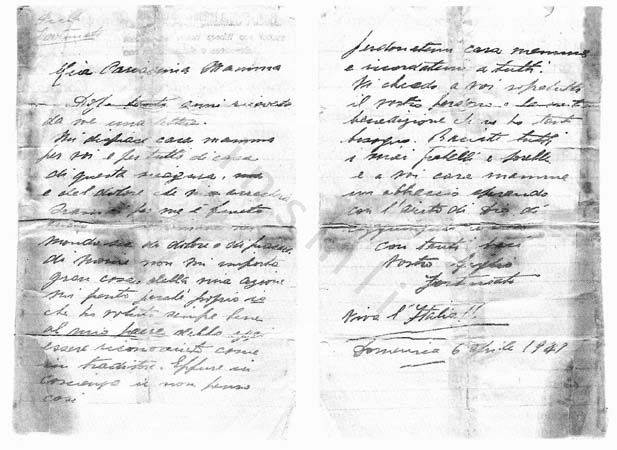 Mia Carissima Mamma
Dopo tanti anni ricevete
da me una lettera.
Mi dispiace cara mamma
per voi e per tutti di casa
di questa sciagura, ma
e del dolore che vi
per me è finito
mondo sia di dolore o di piacere
di morire non mi importa
gran cosa. della mia azione
mi pento, perchè proprio io
che ho voluto sempre bene
al mio paese debba oggi
essere riconosciuto come
un traditore. Eppure in
coscienza io non penso
così
perdonatemi cara mamma
e ricordatemi a tutti.
Vi chiedo a voi sopratutto
il vostro perdono e la vostra
benedizione che ne ho tanto
bisogno. Baciate tutti
i miei fratelli e sorelle
e a voi cara mamma
un abbraccio sperando
con l'aiuto di Dio di
con tanti baci
vostro figlio
Fortunato
Viva l'Italia!!
Domenica 6 aprile 1941